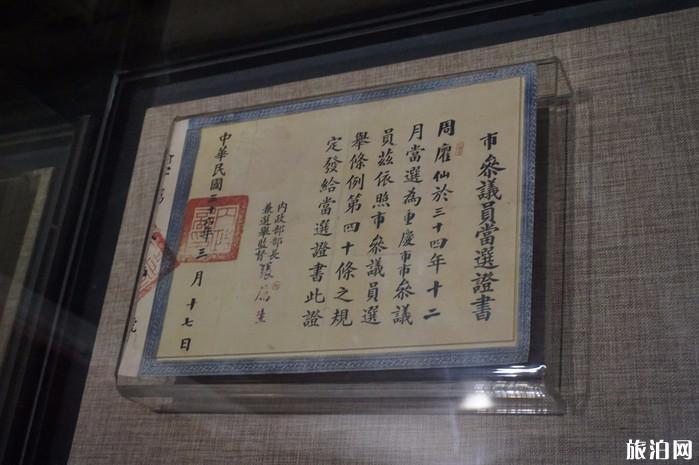 市參議員當選證書
周仙於三十四年十二
月當選為重慶市市參議
員茲依照市參議員選
舉條例第四十條之規
定發給當選證書此證
內政部部長
兼選舉監督
張厲生
中華民國三十六年三月十七日
旅泊网